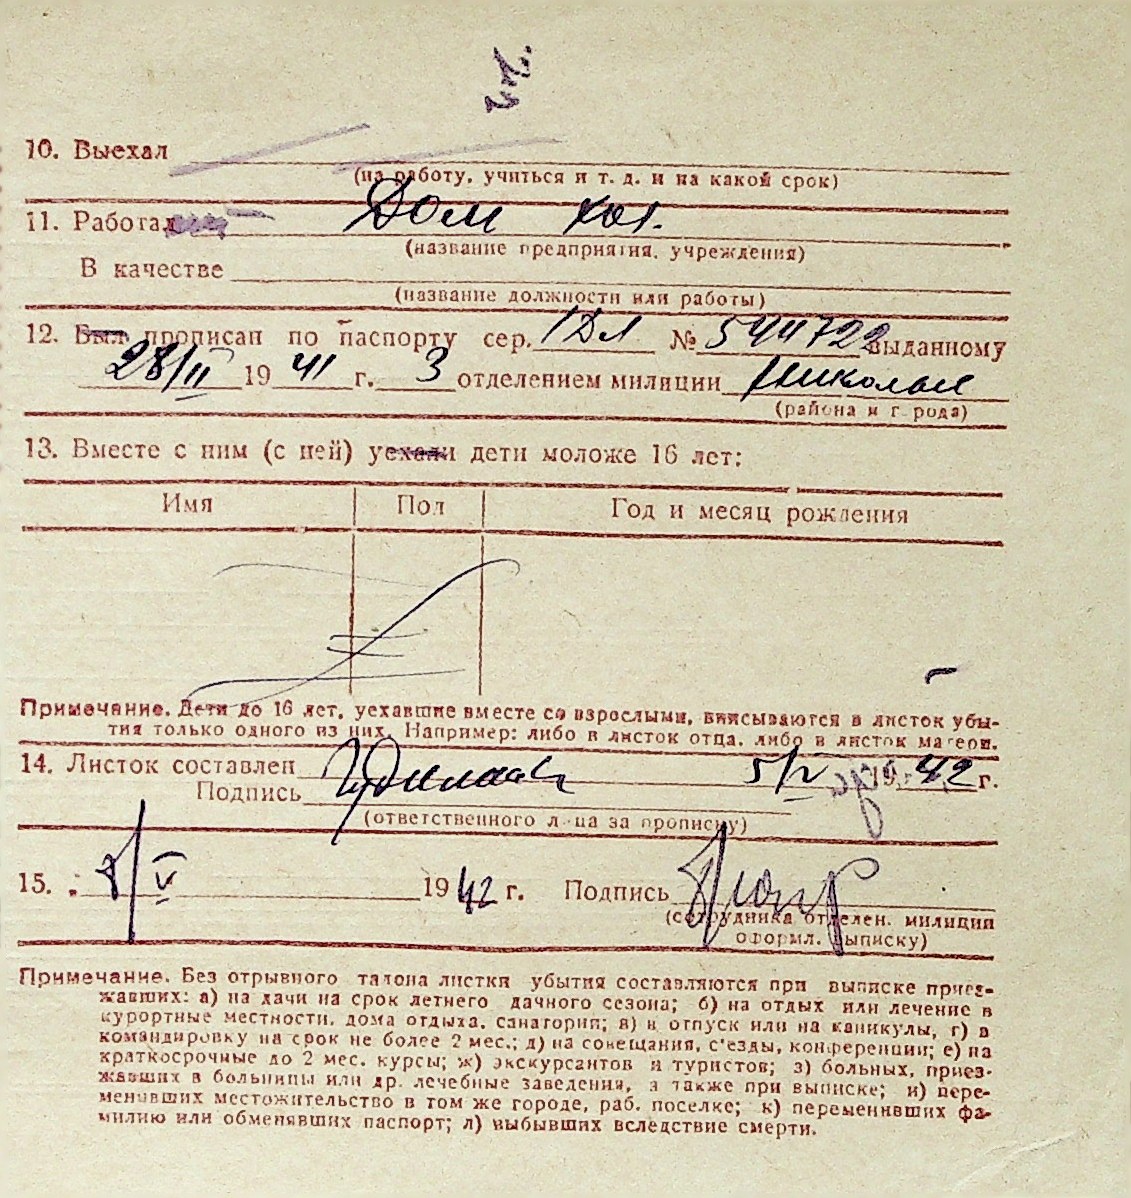 10. Выехал
(на работу, учиться и т. д. и на какой срок)
11. Работал Дом хоз.
(название предприятия, учреждения)
В качестве
(название должности или работы)
12. Был прописан по паспорту сер. № 544722 выданному
28/II 19 41 г. 3 отделением милиции
(района и города)
13. Вместе с ним (с ней) уехали дети моложе 16 лет:
Имя Пол Год и месяц рождения
Примечание. Дети до 16 лет, уехавшие вместе со взрослыми, вписываются в листок убы-
тия только одного из них. Например: либо в листок отца, либо в листок матери.
14. Листок составлен 5/V 19 42 г.
Подпись
(ответственного лица за прописку)
15. V 19 42 г. Подпись
(сотрудника отделен. милиции
оформл. выписку)
Примечание. Без отрывного талона листки убытия составляются при выписке приез-
жавших: а) на дачи на срок летнего дачного сезона; б) на отдых или лечение в
курортные местности, дома отдыха, санатории; в) в отпуск или на каникулы, г) в
командировку на срок не более 2 мес.; д) на совещания, с'езды, конференции; е) на
краткосрочные до 2 мес. курсы; ж) экскурсантов и туристов; з) больных, приез-
жавших в больницы или др. лечебные заведения, а также при выписке; и) пере-
менивших местожительство в том же городе, раб. поселке; к) переменивших фа-
милию или обменявших паспорт; л) выбывших вследствие смерти.